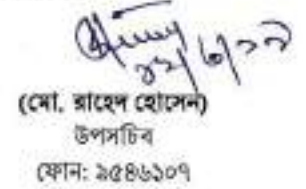 ১২/৬/১৯
(মো. রাহেদ হোসেন)
উপসচিব
ফোন: ৯৫৪৬১০৭